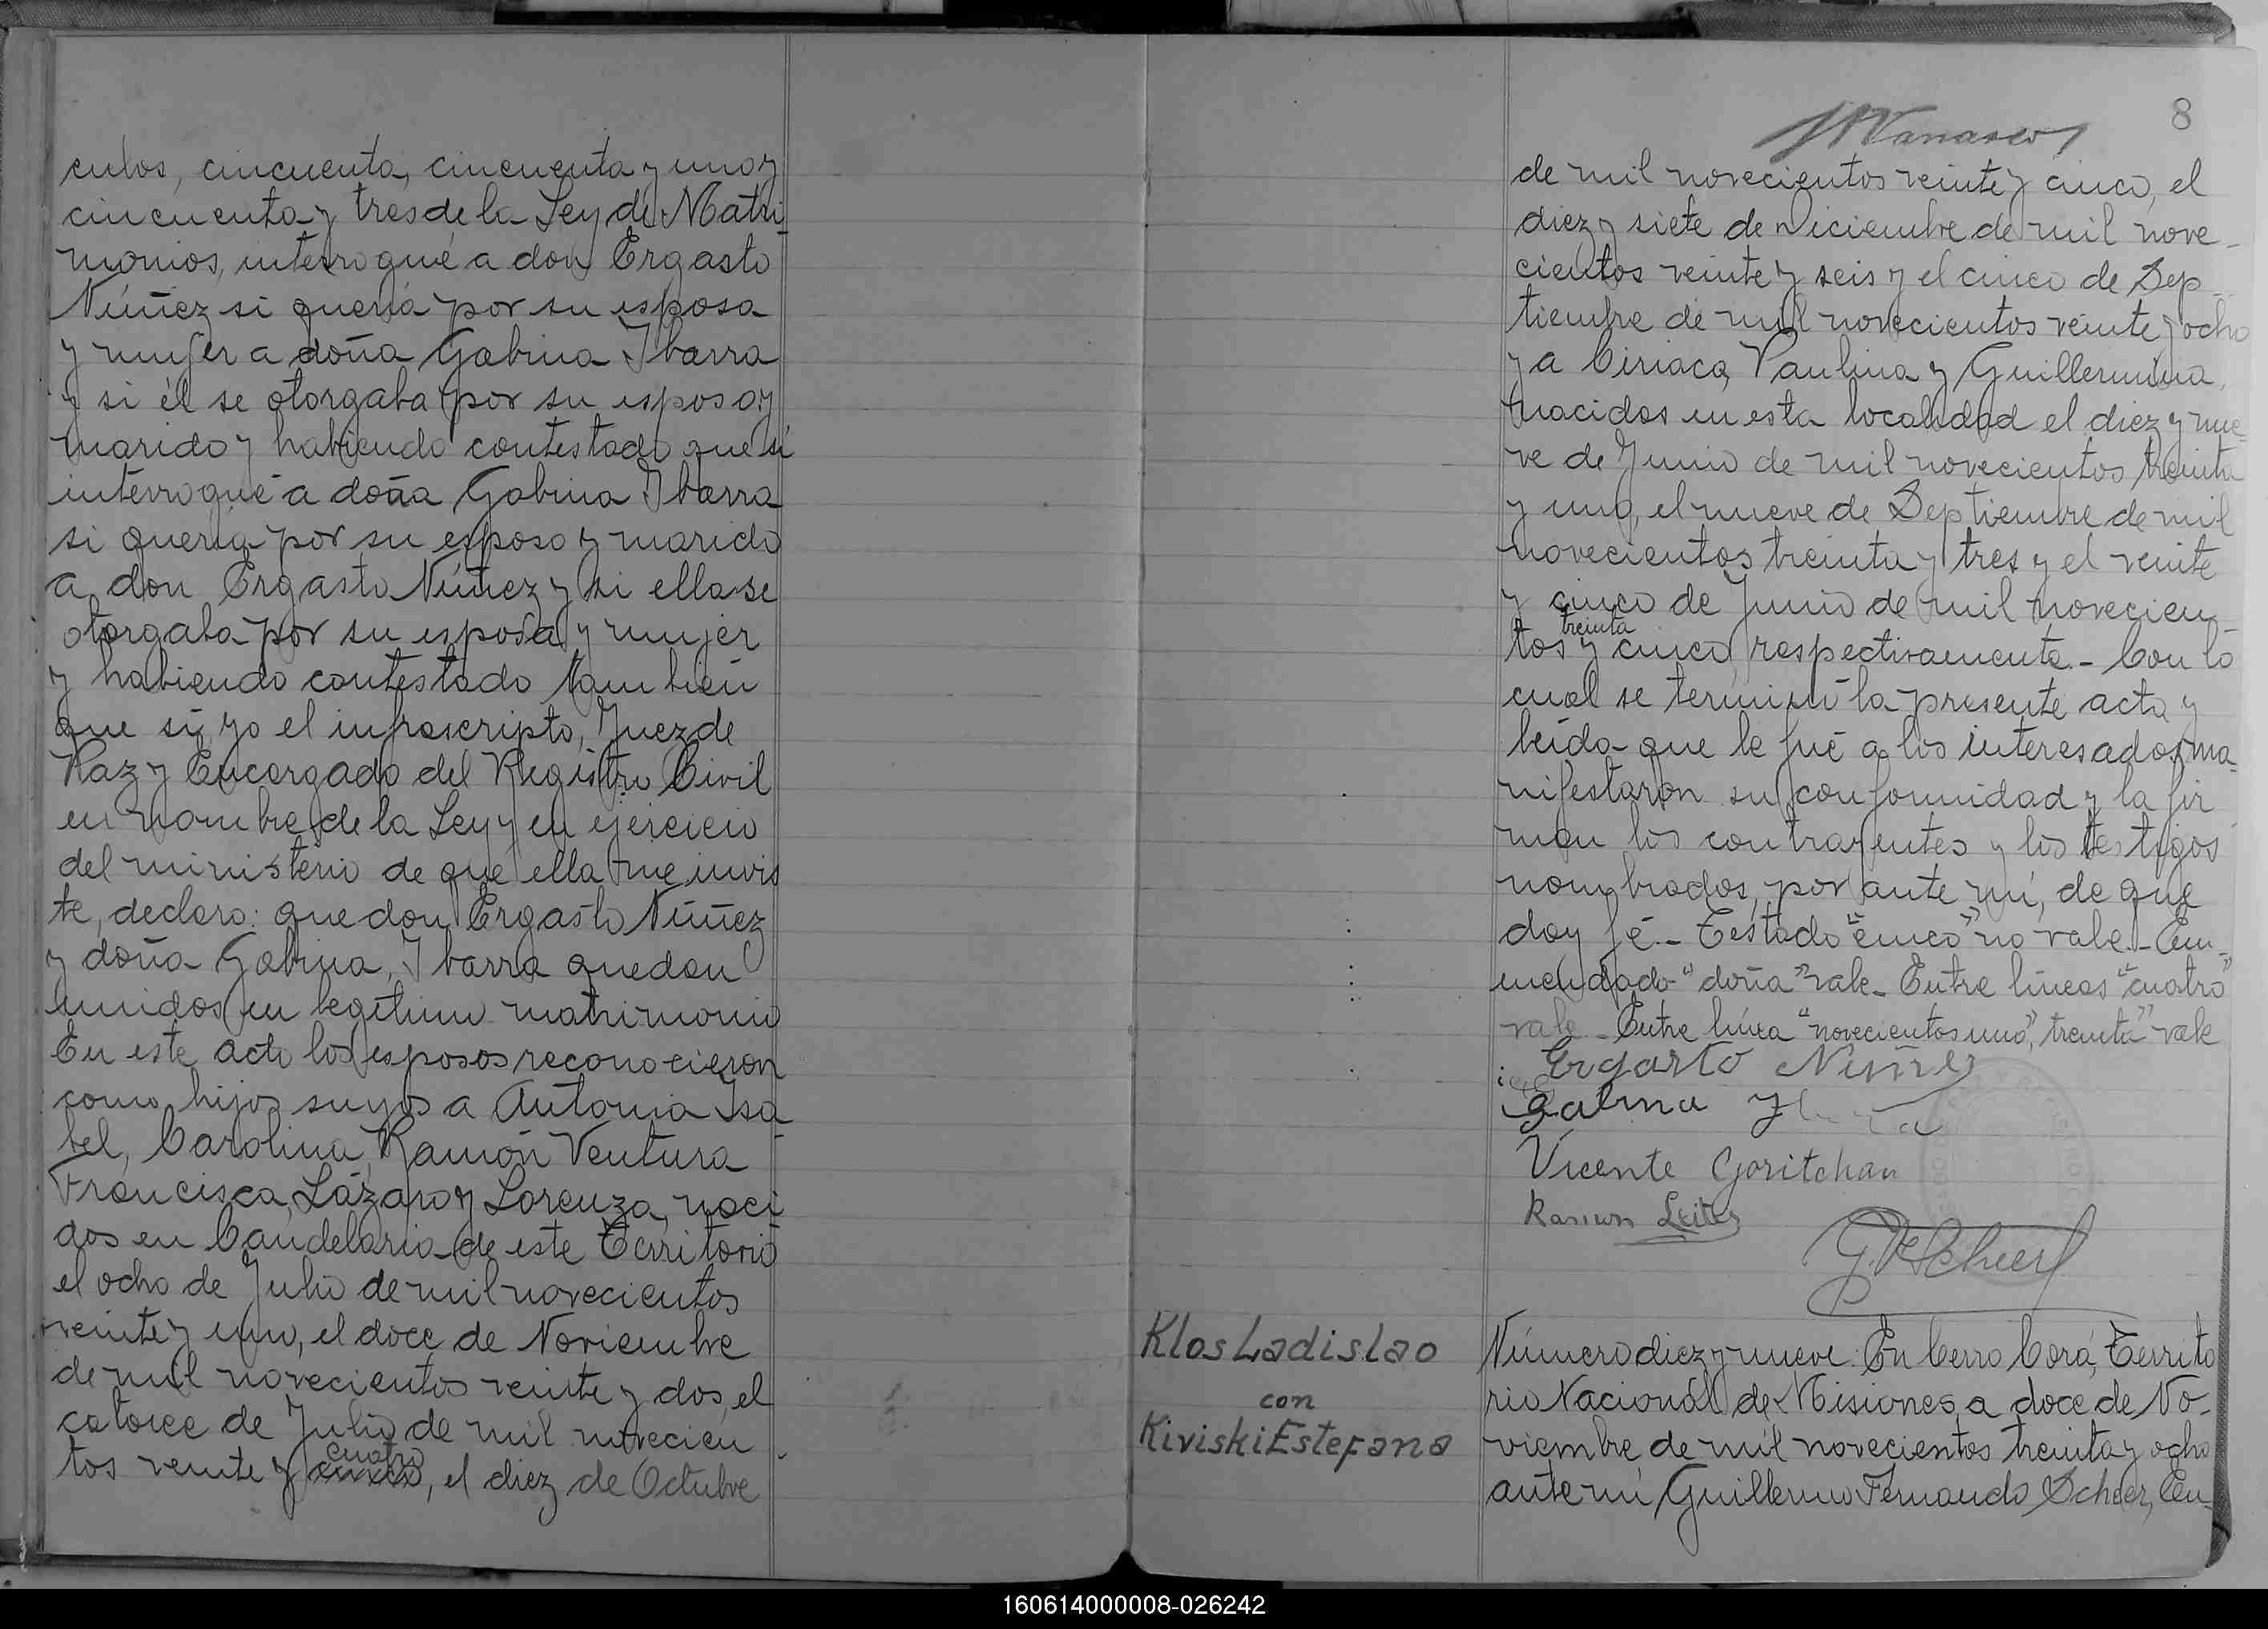 culos, cincuenta, cincuenta y uno y
cincuenta y tres de la Ley de Matri
monios, interrogué a don Ergasto
Núñez si quería por su esposa
y mujer a doña Gabina Ibarra
y si él se otorgaba por su esposo y
marido y habiendo contestado que sí
interrogué a doña Gabina Ibarra
si quería por su esposo y marido
a don Ergasto Núñez y si ella se
otorgaba por su esposa y mujer
y habiendo contestado tambien
que sí, yo el infrascripto, Juez de
Paz y Encargado del Registro Civil
en nombre de la Ley y en ejercicio
del ministerio de que ella me invis
te, declaro: que don Ergasto Núñez
y doña Gabina Ibarra quedan
unidos en legítimo matrimonio
En este acto los esposos reconocieron
como hijos suyos a Antonia Isa
bel, Carolina, Ramón Ventura
Francisca, Lázaro y Lorenza, naci
dos en Candelaria de este Territorio
el ocho de Julio de mil novecientos
veinte y uno, el doce de Noviembre
de mil novecientos veinte y dos, el
catorce de Julio de mil novecien
cuatro
tos veinte y cinco, el diez de Octubre
8
de mil novecientos veinte y cinco, el
diez y siete de Diciembre de mil nove-
cientos veinte y seis y el cinco de Sep-
tiembre de mil novecientos veinte y ocho
y a Ciriaca, Paulina y Guillermina,
nacidas en esta localidad el diez y nue
ve de Junio de mil novecientos treinta
y uno, el nueve de Septiembre de mil
novecientos treinta y tres y el veinte
y cinco de Junio de mil novecien-
treinta
tos y cinco respectivamente.- Con lo
cual se terminó la presente acta y
leída que le fué a los interesados, ma-
nifestaron su conformidad y la fir
man los contrayentes y los testigos
nombrados, por ante mí, de que
doy fé.- Testado "cinco" no vale.- En-
mendado "doña" vale- Entre líneas "cuatro"
vale- Entre línea "novecientos uno", treinta" vale
Ergasto Núñez
Gabina
Vicente Goritchan
Ramon Leites
G. F. Scheer
Klos Ladislao
con
Kiviski Estefana
Número diez y nueve: En Cerro Corá, Territo
rio Nacional de Misiones, a doce de No-
viembre de mil novecientos treinta y ocho
ante mí Guillermo Fernando Scheer, En-
160614000008-026242